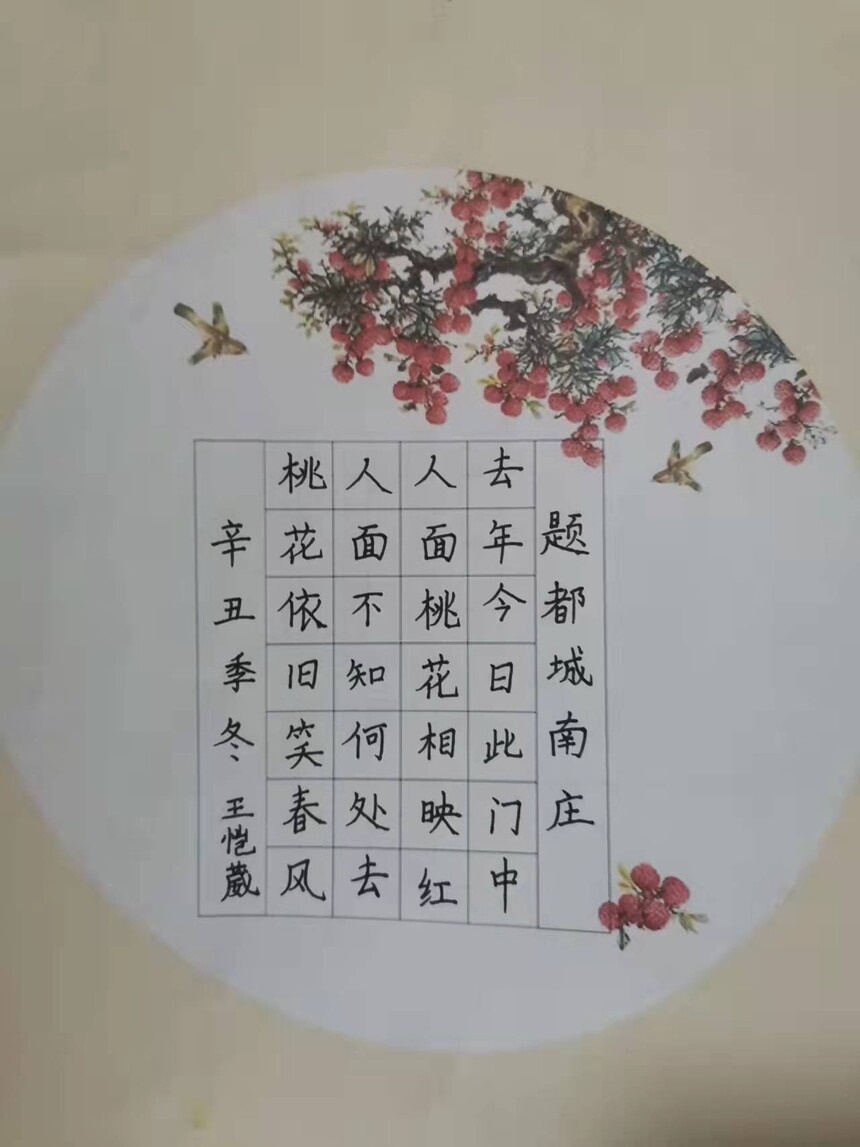 题都城南庄
去年今日此门中
人面桃花相映红
人面不知何处去
桃花依旧笑春风
辛丑季冬 王恺葳